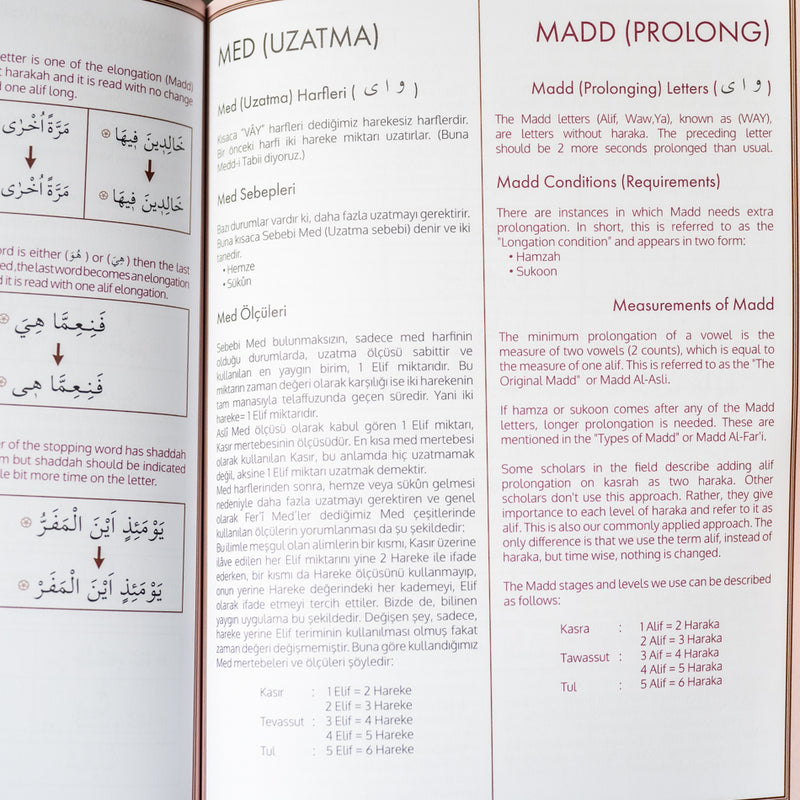 etter is one of the elongation (Madd)
harakah and it is read with no change
one alif long.
خَالِدِينَ فِيهَا
مَرَّةً اُخْرٰى
خَالِدِينَ فِيهَا
مَرَّةً اُخْرٰى
ord is either (هُوَ) or (هِيَ) then the last
ed, the last word becomes an elongation
d it is read with one alif elongation.
فَنِعِمَّا هِيَ
فَنِعِمَّا هِى
er of the stopping word has shaddah
m but shaddah should be indicated
le bit more time on the letter.
يَوْمَئِذٍ اَيْنَ الْمَفَرُّ
يَوْمَئِذٍ اَيْنَ الْمَفَرْ
MED (UZATMA)
Med (Uzatma) Harfleri ( و ا ى )
Kısaca “VÂY” harfleri dediğimiz harekesiz harflerdir.
Bir önceki harfi iki hareke miktarı uzatırlar. (Buna
Medd-i Tabii diyoruz.)
Med Sebepleri
Bazı durumlar vardır ki, daha fazla uzatmayı gerektirir.
Buna kısaca Sebebi Med (Uzatma sebebi) denir ve iki
tanedir.
• Hemze
• Sükûn
Med Ölçüleri
Sebebi Med bulunmaksızın, sadece med harfinin
olduğu durumlarda, uzatma ölçüsü sabittir ve
kullanılan en yaygın birim, 1 Elif miktarıdır. Bu
miktarın zaman değeri olarak karşılığı ise iki harekenin
tam manasıyla telaffuzunda geçen süredir. Yani iki
hareke= 1 Elif miktarıdır.
Aslî Med ölçüsü olarak kabul gören 1 Elif miktarı,
Kasır mertebesinin ölçüsüdür. En kısa med mertebesi
olarak kullanılan Kasır, bu anlamda hiç uzatmamak
değil, aksine 1 Elif miktarı uzatmak demektir.
Med harflerinden sonra, hemze veya sükûn gelmesi
nedeniyle daha fazla uzatmayı gerektiren ve genel
olarak Fer’î Med’ler dediğimiz Med çeşitlerinde
kullanılan ölçülerin yorumlanması da şu şekildedir:
Bu ilimle meşgul olan alimlerin bir kısmı, Kasır üzerine
ilâve edilen her Elif miktarını yine 2 Hareke ile ifade
ederken, bir kısmı da Hareke ölçüsünü kullanmayıp,
onun yerine Hareke değerindeki her kademeyi, Elif
olarak ifade etmeyi tercih ettiler. Bizde de, bilinen
yaygın uygulama bu şekildedir. Değişen şey, sadece,
hareke yerine Elif teriminin kullanılması olmuş fakat
zaman değeri değişmemiştir. Buna göre kullandığımız
Med mertebeleri ve ölçüleri şöyledir:
Kasır : 1 Elif = 2 Hareke
2 Elif = 3 Hareke
Tevassut : 3 Elif = 4 Hareke
4 Elif = 5 Hareke
Tul : 5 Elif = 6 Hareke
MADD (PROLONG)
Madd (Prolonging) Letters ( و ا ى )
The Madd letters (Alif, Waw,Ya), known as (WAY),
are letters without haraka. The preceding letter
should be 2 more seconds prolonged than usual.
Madd Conditions (Requirements)
There are instances in which Madd needs extra
prolongation. In short, this is referred to as the
"Longation condition" and appears in two form:
• Hamzah
• Sukoon
Measurements of Madd
The minimum prolongation of a vowel is the
measure of two vowels (2 counts), which is equal to
the measure of one alif. This is referred to as the "The
Original Madd" or Madd Al-Asli.
If hamza or sukoon comes after any of the Madd
letters, longer prolongation is needed. These are
mentioned in the "Types of Madd" or Madd Al-Far'i.
Some scholars in the field describe adding alif
prolongation on kasrah as two haraka. Other
scholars don't use this approach. Rather, they give
importance to each level of haraka and refer to it as
alif. This is also our commonly applied approach. The
only difference is that we use the term alif, instead of
haraka, but time wise, nothing is changed.
The Madd stages and levels we use can be described
as follows:
Kasra : 1 Alif = 2 Haraka
2 Alif = 3 Haraka
Tawassut : 3 Aif = 4 Haraka
4 Alif = 5 Haraka
Tul : 5 Alif = 6 Haraka